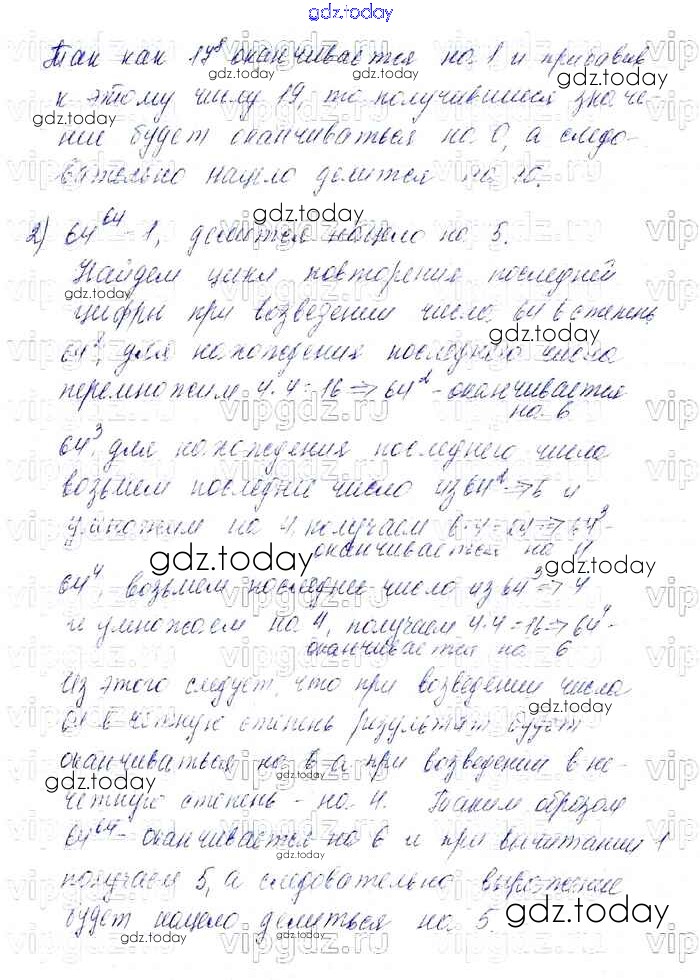 gdz.today
Так как 17⁸ оканчивается на 1 и прибавив
к этому числу 19, то получившееся значе-
ние будет оканчиваться на 0, а следо-
вательно нацело делится на 10.
2) 64⁶⁴ - 1, делится нацело на 5.
Найдем цикл повторения последней
цифры при возведении числа 64 в степень
64², для нахождения последнего числа
перемножим 4·4=16 => 64² - оканчивается
на 6
64³, для нахождения последнего числа
возьмем последнее число из 64² => 6 и
умножим на 4, получаем 6·4=24 => 64³ -
оканчивается на 4
64⁴, возьмем последнее число из 64³ => 4
и умножаем на 4, получаем 4·4=16 => 64⁴ -
оканчивается на 6
Из этого следует, что при возведении числа
64 в четную степень результат будет
оканчиваться на 6 а при возведении в не-
четную степень - на 4. Таким образом
64⁶⁴ - оканчивается на 6 и при вычитании 1
получаем 5, а следовательно выражение
будет нацело делиться на 5.
gdz.today